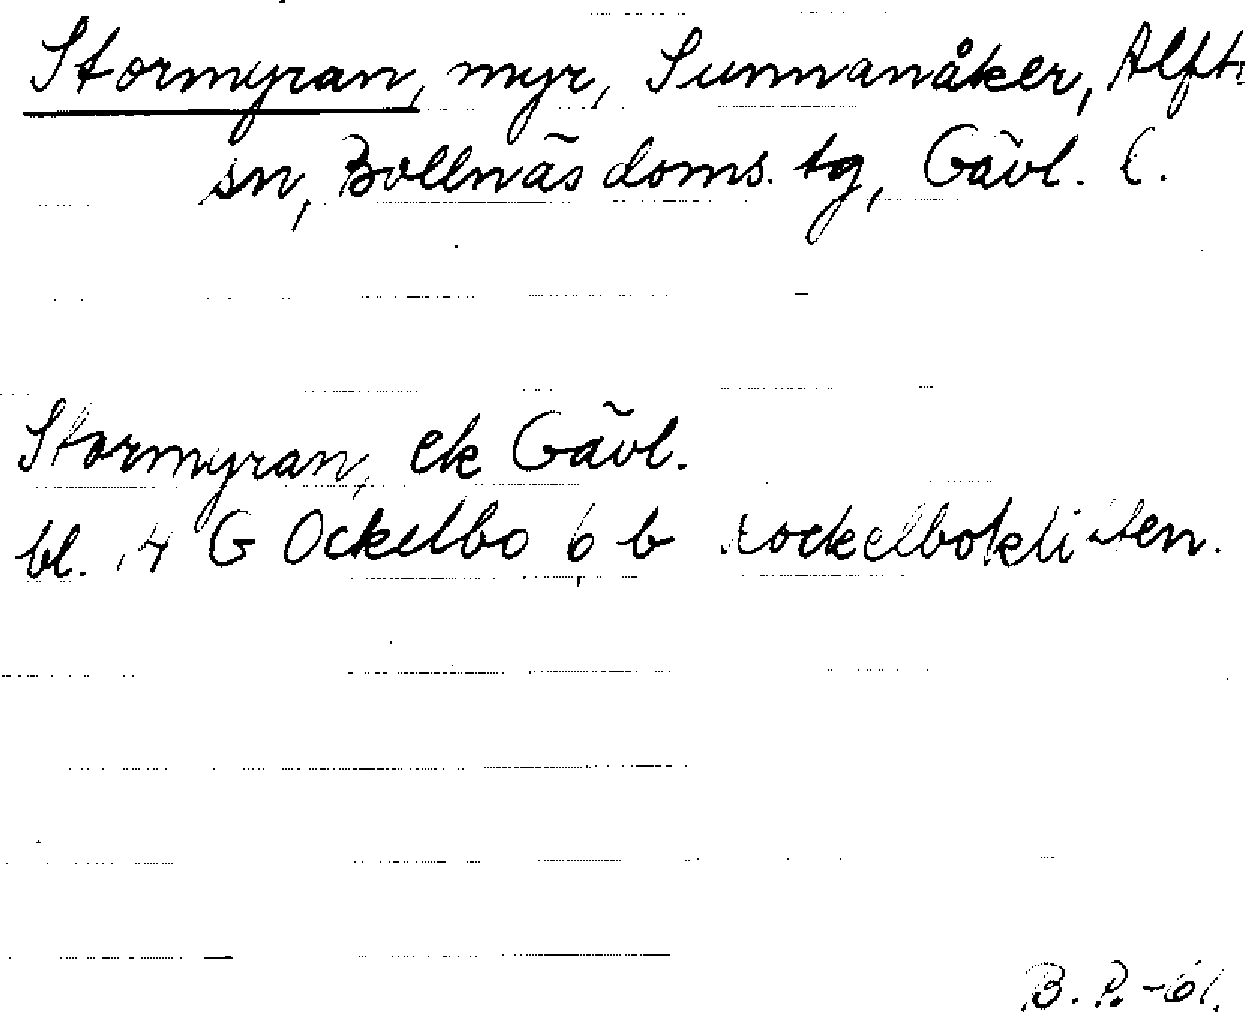 Stormyran, myr, Sunnanåker, Alfta
sn, Bollnäs doms. tg, Gävl. l.
Stormyran, ek Gävl.
bl. 14 G Ockelbo 6 b
B. P. -61.